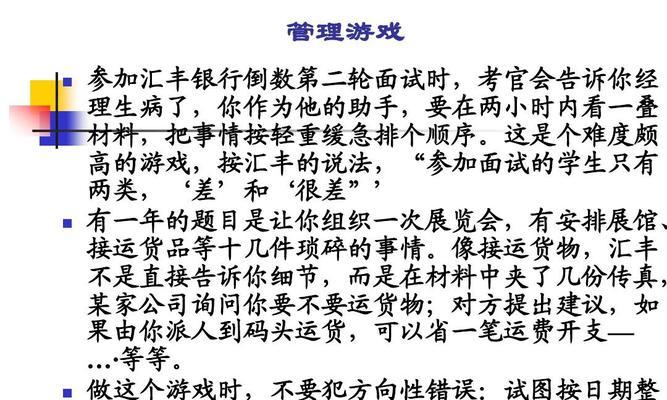 管理游戏
参加汇丰银行倒数第二轮面试时，考官会告诉你经
理生病了，你作为他的助手，要在两小时内看一叠
材料，把事情按轻重缓急排个顺序。这是个难度颇
高的游戏，按汇丰的说法，“参加面试的学生只有
两类，‘差’和‘很差”’
有一年的题目是让你组织一次展览会，有安排展馆、
接运货品等十几件琐碎的事情。像接运货物，汇丰
不是直接告诉你细节，而是在材料中夹了几份传真，
某家公司询问你要不要运货物；对方提出建议，如
果由你派人到码头运货，可以省一笔运费开支—
…·等等。
做这个游戏时，不要犯方向性错误：试图按日期整